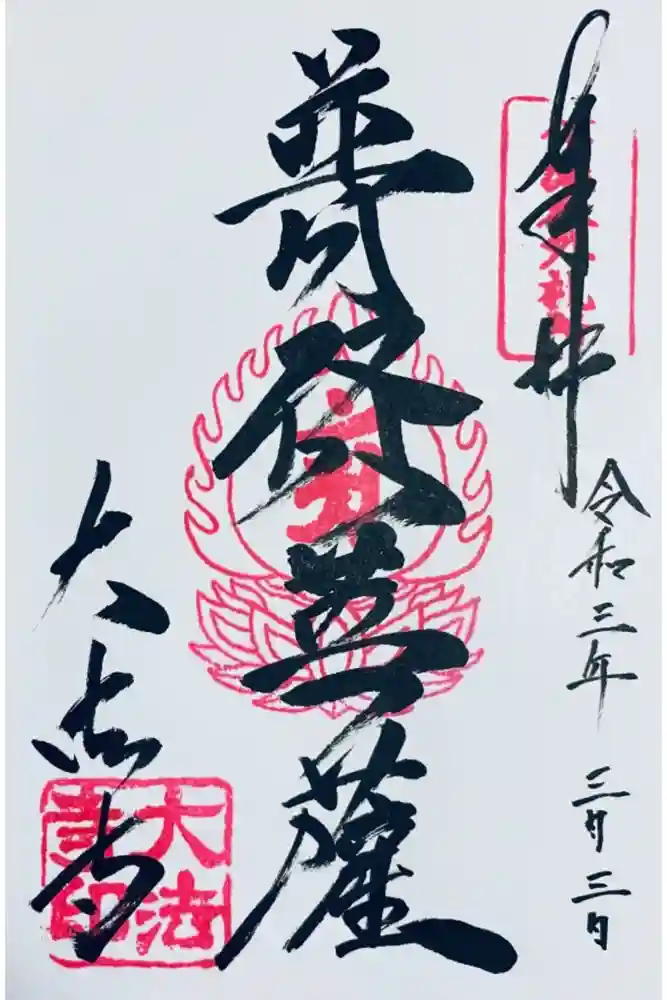 奉拝
令和三年 三月三日
菩薩
大法寺
大法
寺印